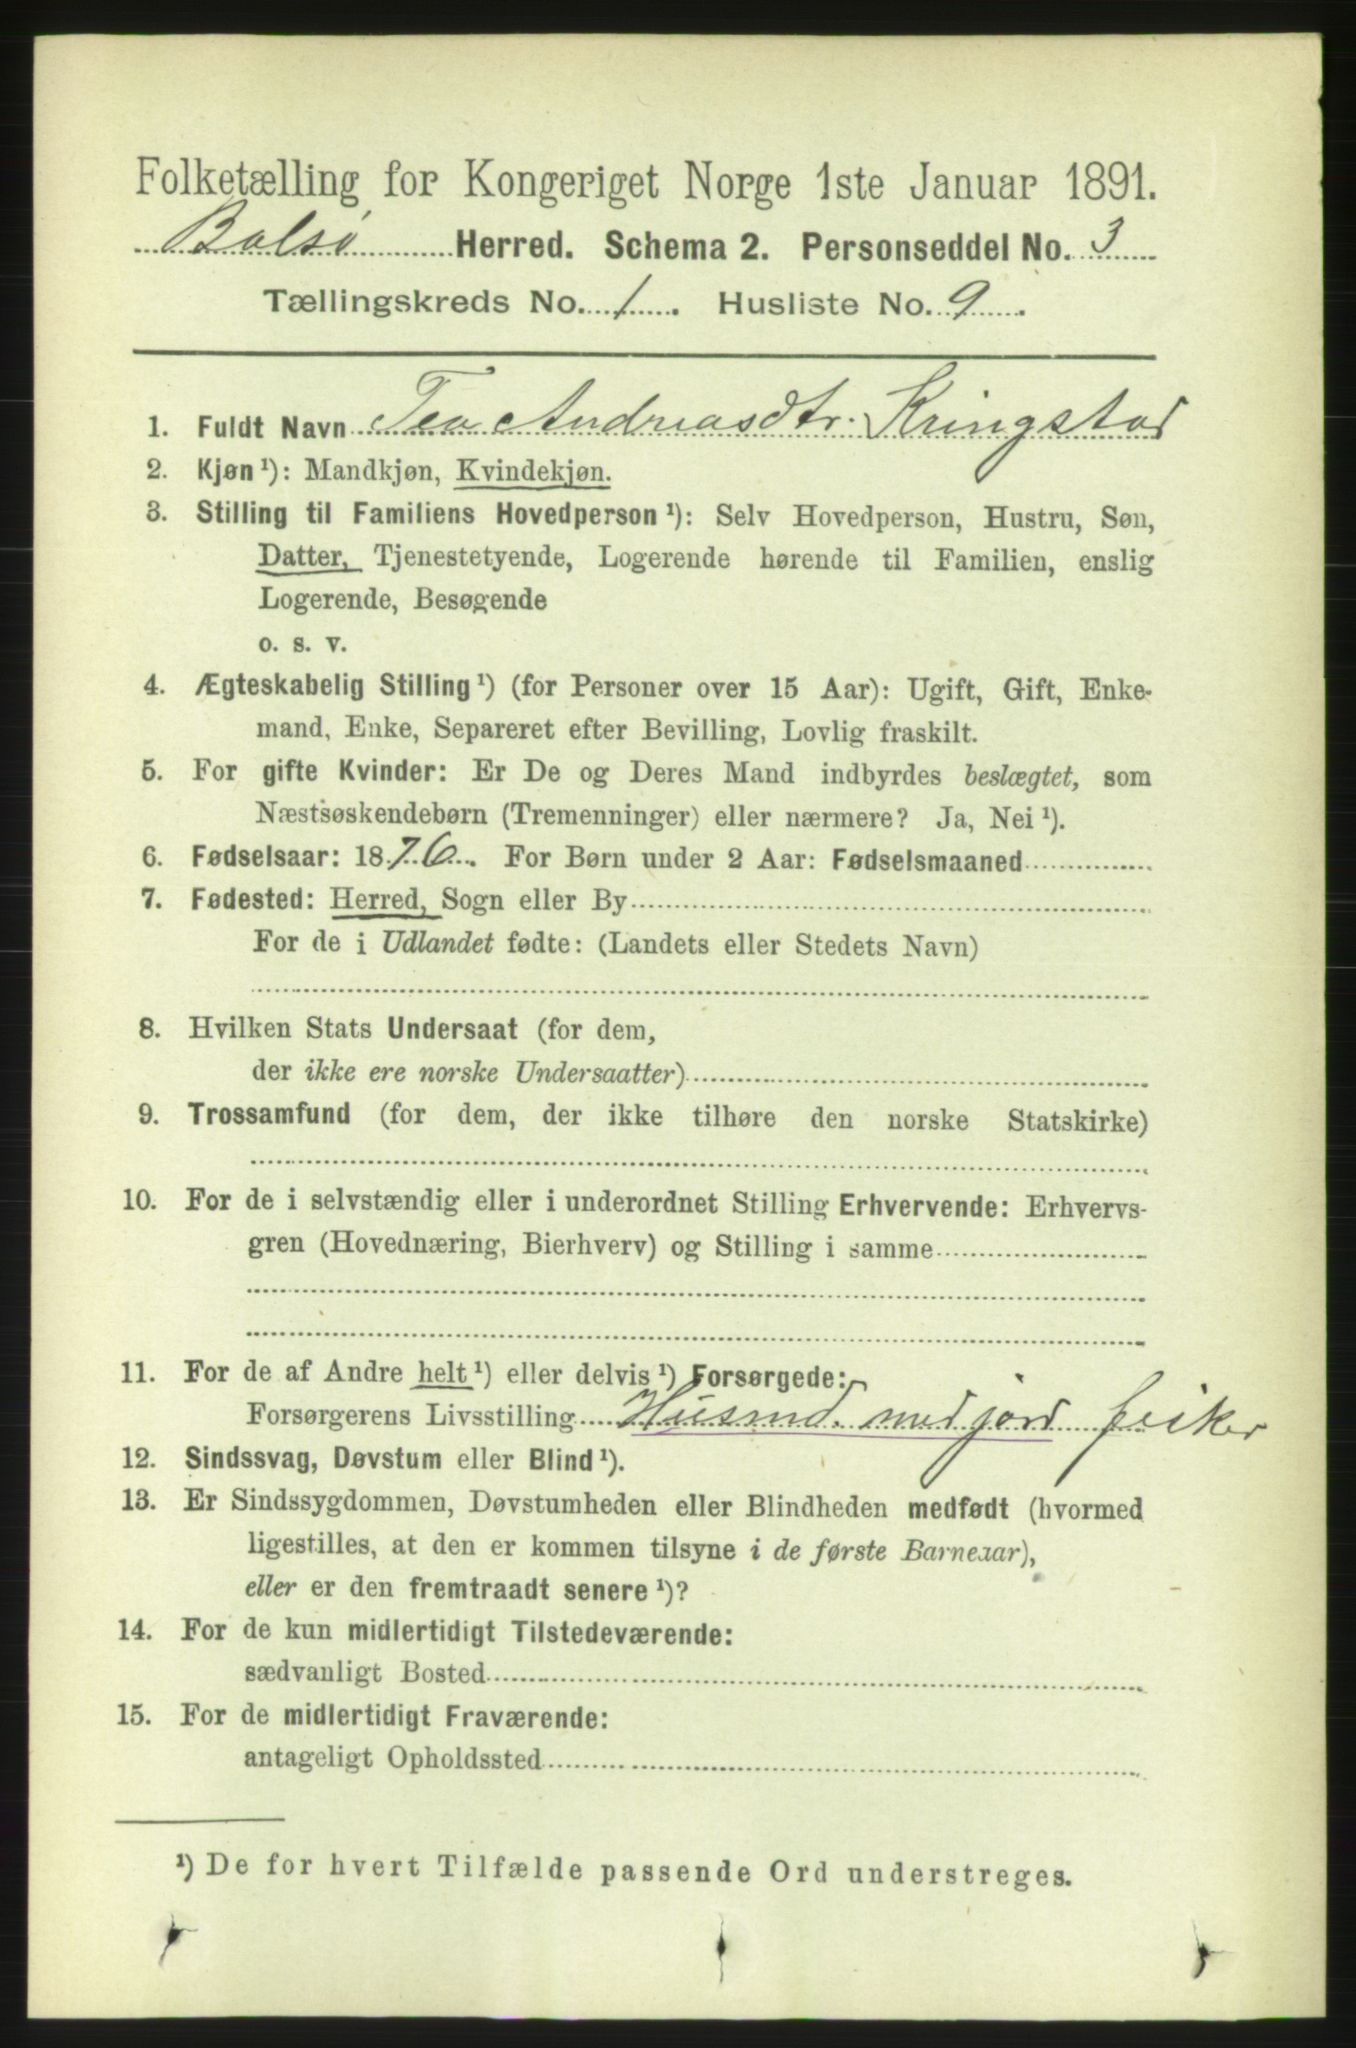 Folketælling for Kongeriget Norge 1ste Januar 1891.
Bolsø Herred. Schema 2. Personseddel No. 3
Tællingskreds No. 1. Husliste No. 9.
1. Fuldt Navn Tea Andreasdtr. Kringstad
2. Kjøn ¹): Mandkjøn, Kvindekjøn.
3. Stilling til Familiens Hovedperson ¹): Selv Hovedperson, Hustru, Søn,
Datter, Tjenestetyende, Logerende hørende til Familien, enslig
Logerende, Besøgende
o. s. v.
4. Ægteskabelig Stilling ¹) (for Personer over 15 Aar): Ugift, Gift, Enke-
mand, Enke, Separeret efter Bevilling, Lovlig fraskilt.
5. For gifte Kvinder: Er De og Deres Mand indbyrdes beslægtet, som
Næstsøskendebørn (Tremenninger) eller nærmere? Ja, Nei ¹).
6. Fødselsaar: 1876. For Børn under 2 Aar: Fødselsmaaned
7. Fødested: Herred, Sogn eller By
For de i Udlandet fødte: (Landets eller Stedets Navn)
8. Hvilken Stats Undersaat (for dem,
der ikke ere norske Undersaatter)
9. Trossamfund (for dem, der ikke tilhøre den norske Statskirke)
10. For de i selvstændig eller i underordnet Stilling Erhvervende: Erhvervs-
gren (Hovednæring, Bierhverv) og Stilling i samme
11. For de af Andre helt ¹) eller delvis ¹) Forsørgede:
Forsørgerens Livsstilling Husmd. med jord fisker
12. Sindssvag, Døvstum eller Blind ¹).
13. Er Sindssygdommen, Døvstumheden eller Blindheden medfødt (hvormed
ligestilles, at den er kommen tilsyne i de første Barneaar),
eller er den fremtraadt senere ¹)?
14. For de kun midlertidigt Tilstedeværende:
sædvanligt Bosted
15. For de midlertidigt Fraværende:
antageligt Opholdssted
¹) De for hvert Tilfælde passende Ord understreges.